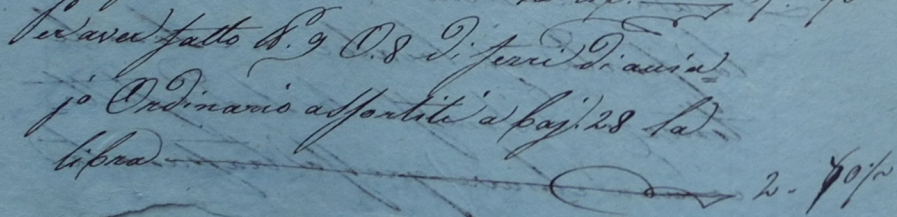 Per aver fatto N.º 9 O. 8 di ferri di accia=
jo Ordinario assortiti a baj. 28 la
libra 2.